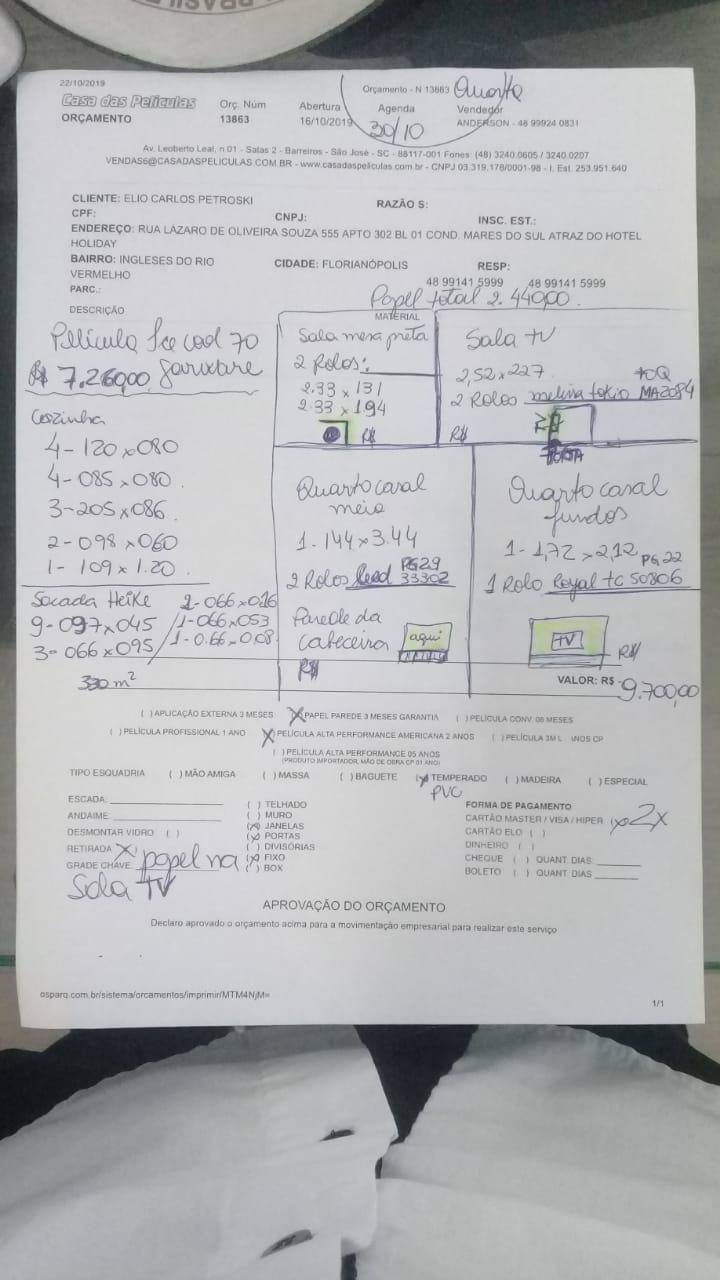 22/10/2019
Casa das Películas
ORÇAMENTO
Orç. Núm
13863
Abertura
16/10/2019
Orçamento - N 13863 Quarta
Agenda
30/10
Vendedor
ANDERSON - 48 99924 0831
Av. Leoberto Leal, n 01 - Salas 2 - Barreiros - São José - SC - 88117-001 Fones: (48) 3240.0605 / 3240.0207
VENDAS6@CASADASPELICULAS.COM.BR - www.casadaspeliculas.com.br - CNPJ 03.319.178/0001-98 - I. Est. 253.951.640
CLIENTE: ELIO CARLOS PETROSKI
RAZÃO S:
CPF:
CNPJ:
INSC. EST.:
ENDEREÇO: RUA LÁZARO DE OLIVEIRA SOUZA 555 APTO 302 BL 01 COND. MARES DO SUL ATRAZ DO HOTEL
HOLIDAY
BAIRRO: INGLESES DO RIO
VERMELHO
CIDADE: FLORIANÓPOLIS
RESP:
48 99141 5999 48 99141 5999
PARC.:
Papel total 2.440,00
DESCRIÇÃO
MATERIAL
Película Ice cod 70
R$ 7.260,00
Cozinha
4-120x080
4-085x080
3-205x086
2-098x060
1-109x1.20
Sacada Heike
9-097x045
3-066x095
2-066x016
1-066x053
1-0.66x0,08
Sala mesa preta
2 Rolos:
2.33 x 131
2.33 x 194
R$
Sala tv
2,52x227
2 Rolos melina tokio MA2084
R$
PORTA
Quarto casal
meio
1-144x3.44
2 Rolos PG29
33302
Parede da
cabeceira
aqui
R$
Quarto casal
fundos
1-1,72x2,12 PG.22
1 Rolo Royal tc 50806
TV
R$
m²
VALOR: R$ 9.700,00
( ) APLICAÇÃO EXTERNA 3 MESES (X) PAPEL PAREDE 3 MESES GARANTIA ( ) PELÍCULA CONV. 06 MESES
( ) PELÍCULA PROFISSIONAL 1 ANO (X) PELÍCULA ALTA PERFORMANCE AMERICANA 2 ANOS ( ) PELÍCULA 3M ANOS CP
( ) PELÍCULA ALTA PERFORMANCE 05 ANOS
(PRODUTO IMPORTADOR, MÃO DE OBRA CP 01 ANO)
TIPO ESQUADRIA ( ) MÃO AMIGA ( ) MASSA ( ) BAGUETE (X) TEMPERADO ( ) MADEIRA ( ) ESPECIAL
PVC
ESCADA:
ANDAIME:
DESMONTAR VIDRO ( )
RETIRADA X papel na
GRADE CHAVE
Sala TV
( ) TELHADO
( ) MURO
(X) JANELAS
(X) PORTAS
( ) DIVISÓRIAS
(X) FIXO
( ) BOX
FORMA DE PAGAMENTO
CARTÃO MASTER / VISA / HIPER (X) 2x
CARTÃO ELO ( )
DINHEIRO ( )
CHEQUE ( ) QUANT. DIAS
BOLETO ( ) QUANT DIAS
APROVAÇÃO DO ORÇAMENTO
Declaro aprovado o orçamento acima para a movimentação empresarial para realizar este serviço
osparq.com.br/sistema/orcamentos/imprimir/MTM4NjM=
1/1